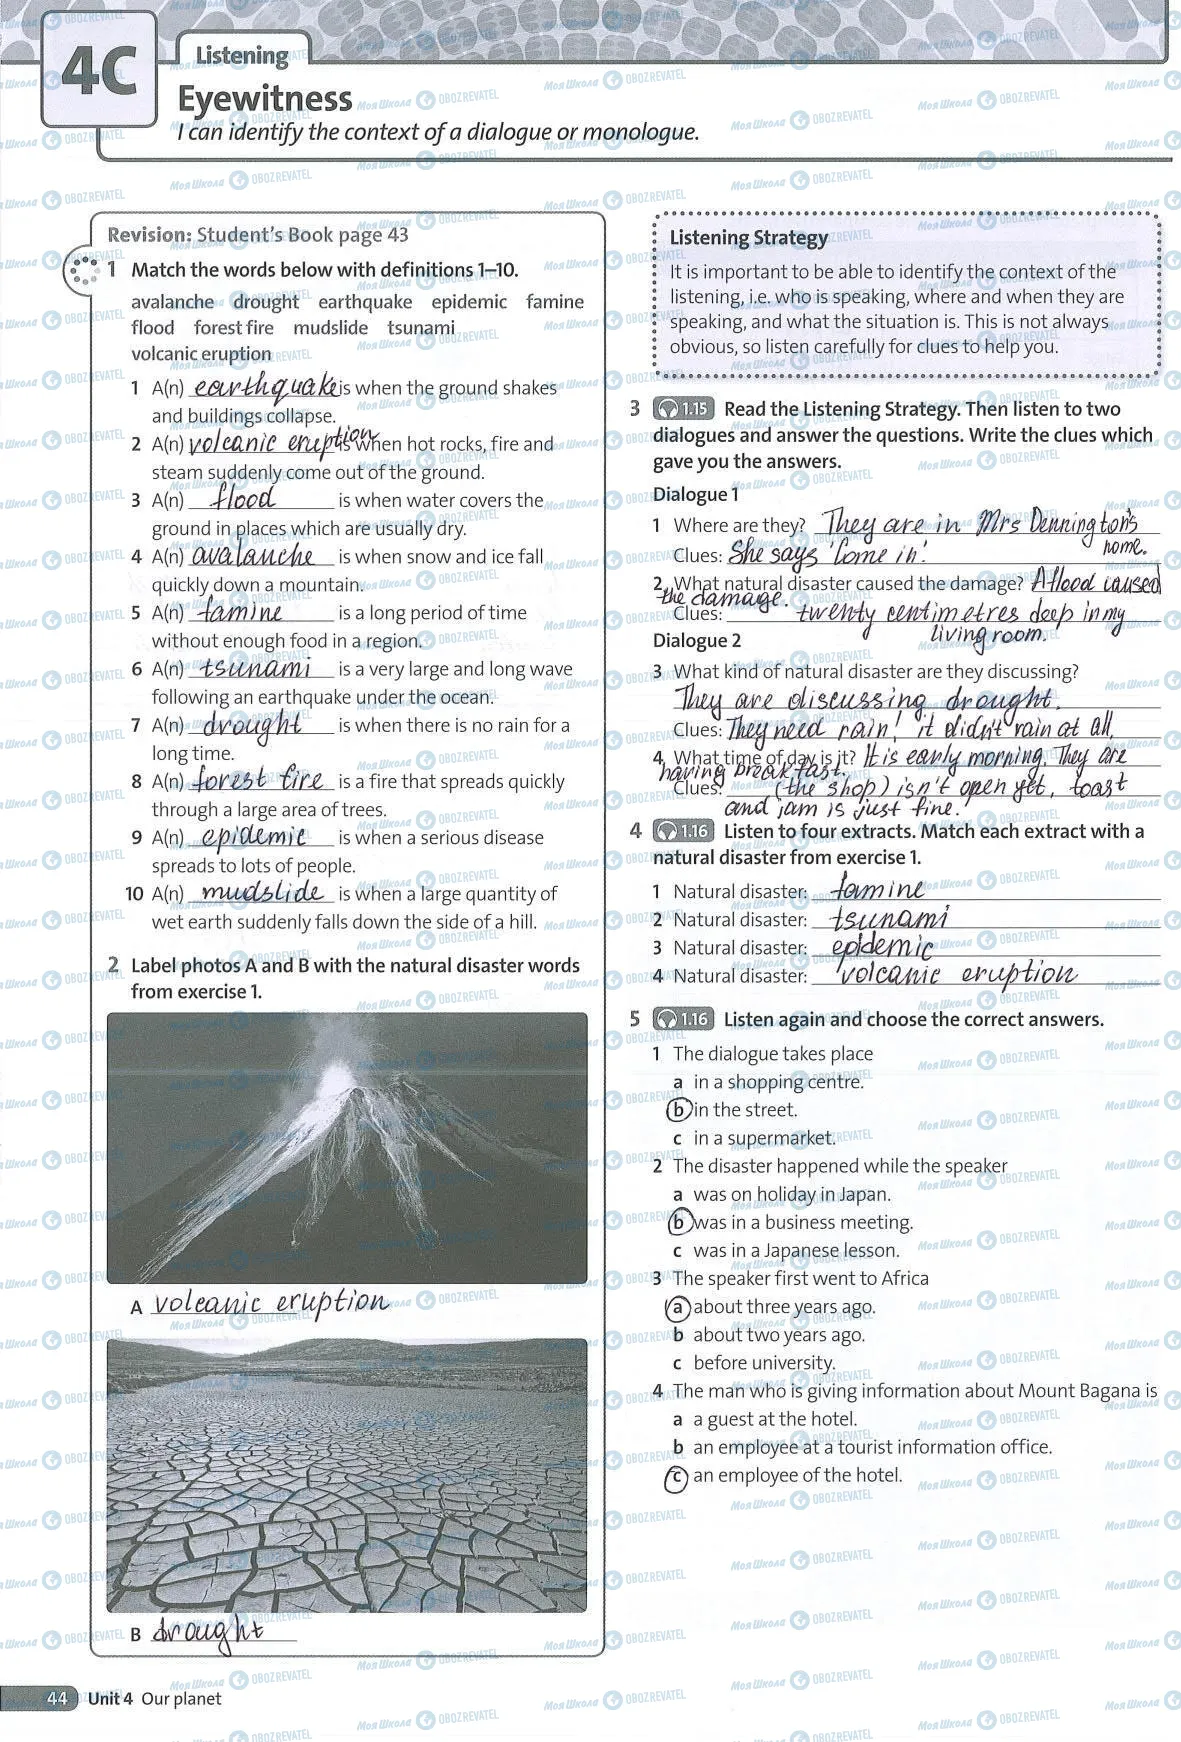 4C
Listening
Eyewitness
I can identify the context of a dialogue or monologue.
Revision: Student's Book page 43
1 Match the words below with definitions 1–10.
avalanche drought earthquake epidemic famine
flood forest fire mudslide tsunami
volcanic eruption
1 A(n) earthquake is when the ground shakes
and buildings collapse.
2 A(n) volcanic eruption is when hot rocks, fire and
steam suddenly come out of the ground.
3 A(n) flood is when water covers the
ground in places which are usually dry.
4 A(n) avalanche is when snow and ice fall
quickly down a mountain.
5 A(n) famine is a long period of time
without enough food in a region.
6 A(n) tsunami is a very large and long wave
following an earthquake under the ocean.
7 A(n) drought is when there is no rain for a
long time.
8 A(n) forest fire is a fire that spreads quickly
through a large area of trees.
9 A(n) epidemic is when a serious disease
spreads to lots of people.
10 A(n) mudslide is when a large quantity of
wet earth suddenly falls down the side of a hill.
2 Label photos A and B with the natural disaster words
from exercise 1.
A volcanic eruption
B drought
Listening Strategy
It is important to be able to identify the context of the
listening, i.e. who is speaking, where and when they are
speaking, and what the situation is. This is not always
obvious, so listen carefully for clues to help you.
3 1.15 Read the Listening Strategy. Then listen to two
dialogues and answer the questions. Write the clues which
gave you the answers.
Dialogue 1
1 Where are they? They are in Mrs Dennington's
home.
Clues: She says 'Come in'.
2 What natural disaster caused the damage? A flood caused
the damage.
Clues: twenty centimetres deep in my
living room.
Dialogue 2
3 What kind of natural disaster are they discussing?
They are discussing drought.
Clues: They need rain! it didn't rain at all,
4 What time of day is it? It is early morning. They are
having breakfast.
Clues: (the shop) isn't open yet, toast
and jam is just fine.
4 1.16 Listen to four extracts. Match each extract with a
natural disaster from exercise 1.
1 Natural disaster: famine
2 Natural disaster: tsunami
3 Natural disaster: epidemic
4 Natural disaster: volcanic eruption
5 1.16 Listen again and choose the correct answers.
1 The dialogue takes place
a in a shopping centre.
b in the street.
c in a supermarket.
2 The disaster happened while the speaker
a was on holiday in Japan.
b was in a business meeting.
c was in a Japanese lesson.
3 The speaker first went to Africa
a about three years ago.
b about two years ago.
c before university.
4 The man who is giving information about Mount Bagana is
a a guest at the hotel.
b an employee at a tourist information office.
c an employee of the hotel.
44 Unit 4 Our planet
Моя Школа OBOZREVATEL